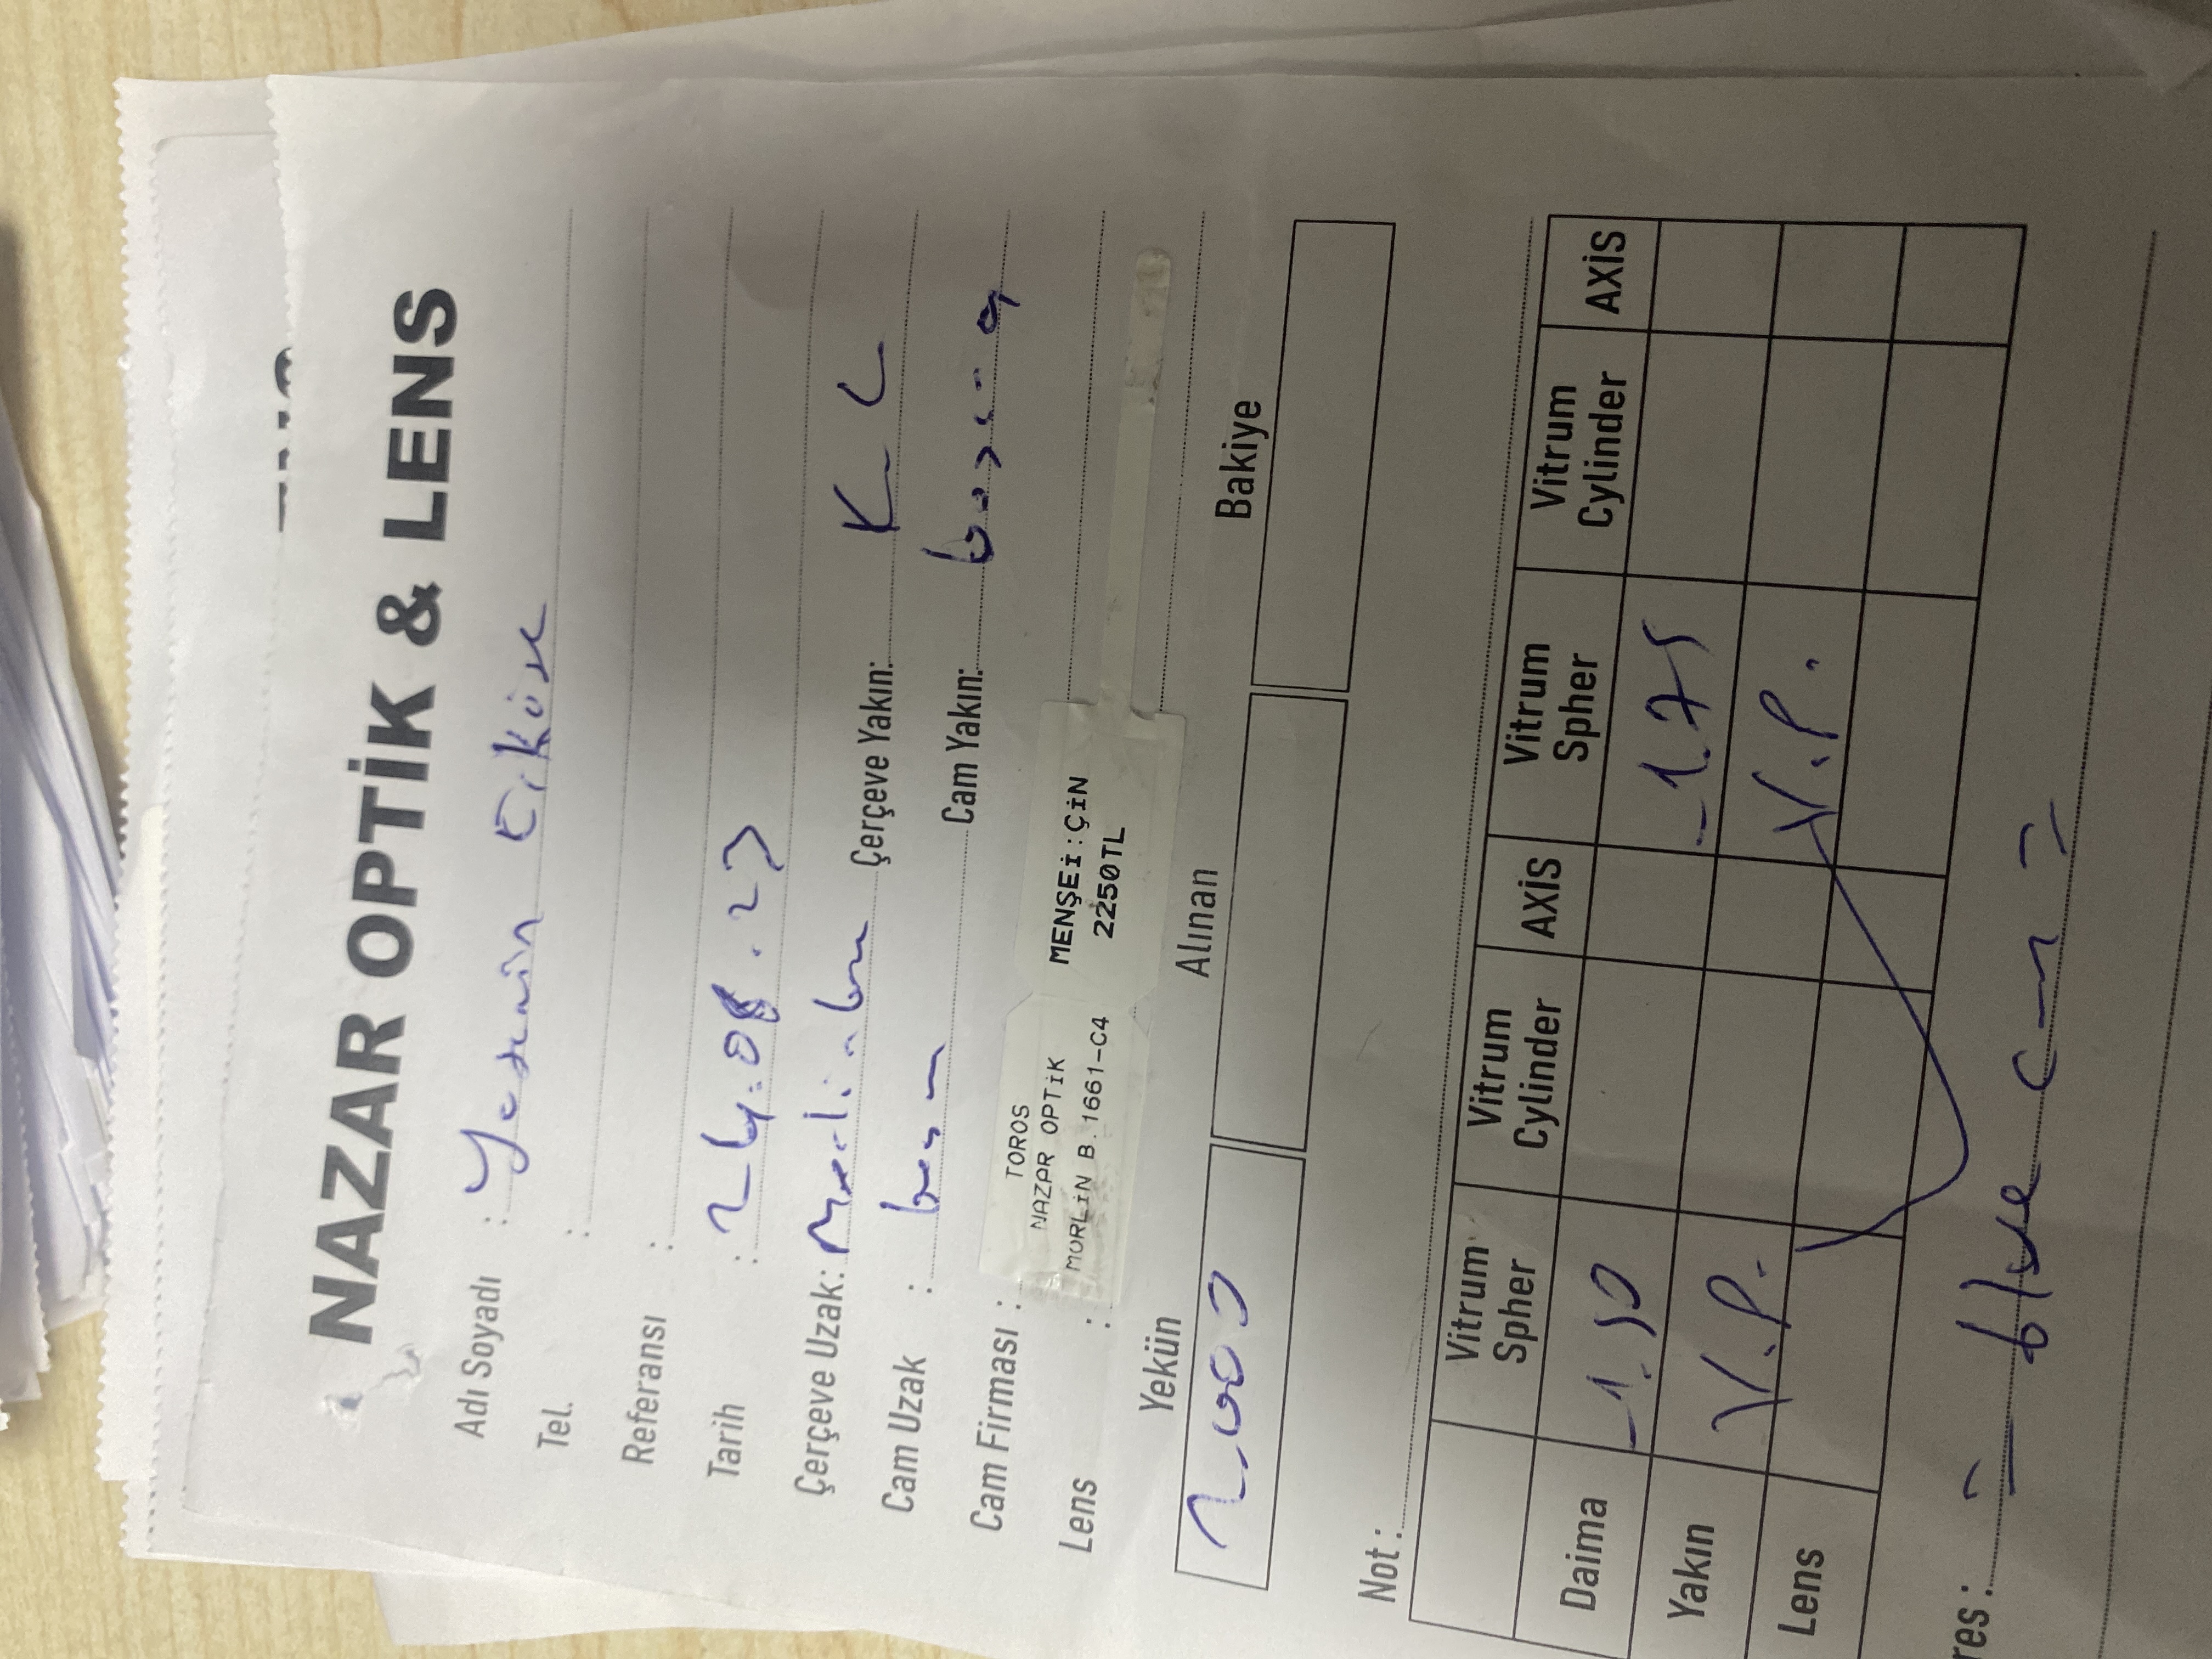 NAZAR OPTİK & LENS
Adı Soyadı : Yasemin Erköse
Tel. :
Referansı :
Tarih : 24.08.23
Çerçeve Uzak: Çerçeve Yakın: K.C
Cam Uzak : Cam Yakın:
Cam Firması :
TOROS
NAZAR OPTİK
MORLİN B.1661-C4
MENŞEİ:ÇİN
2250TL
Lens :
Yekün Alınan Bakiye
2000
Not :
Vitrum Spher Vitrum Cylinder AXİS Vitrum Spher Vitrum Cylinder AXİS
Daima -1.50 -1.75
Yakın V.P. V.P.
Lens
res : = blue =